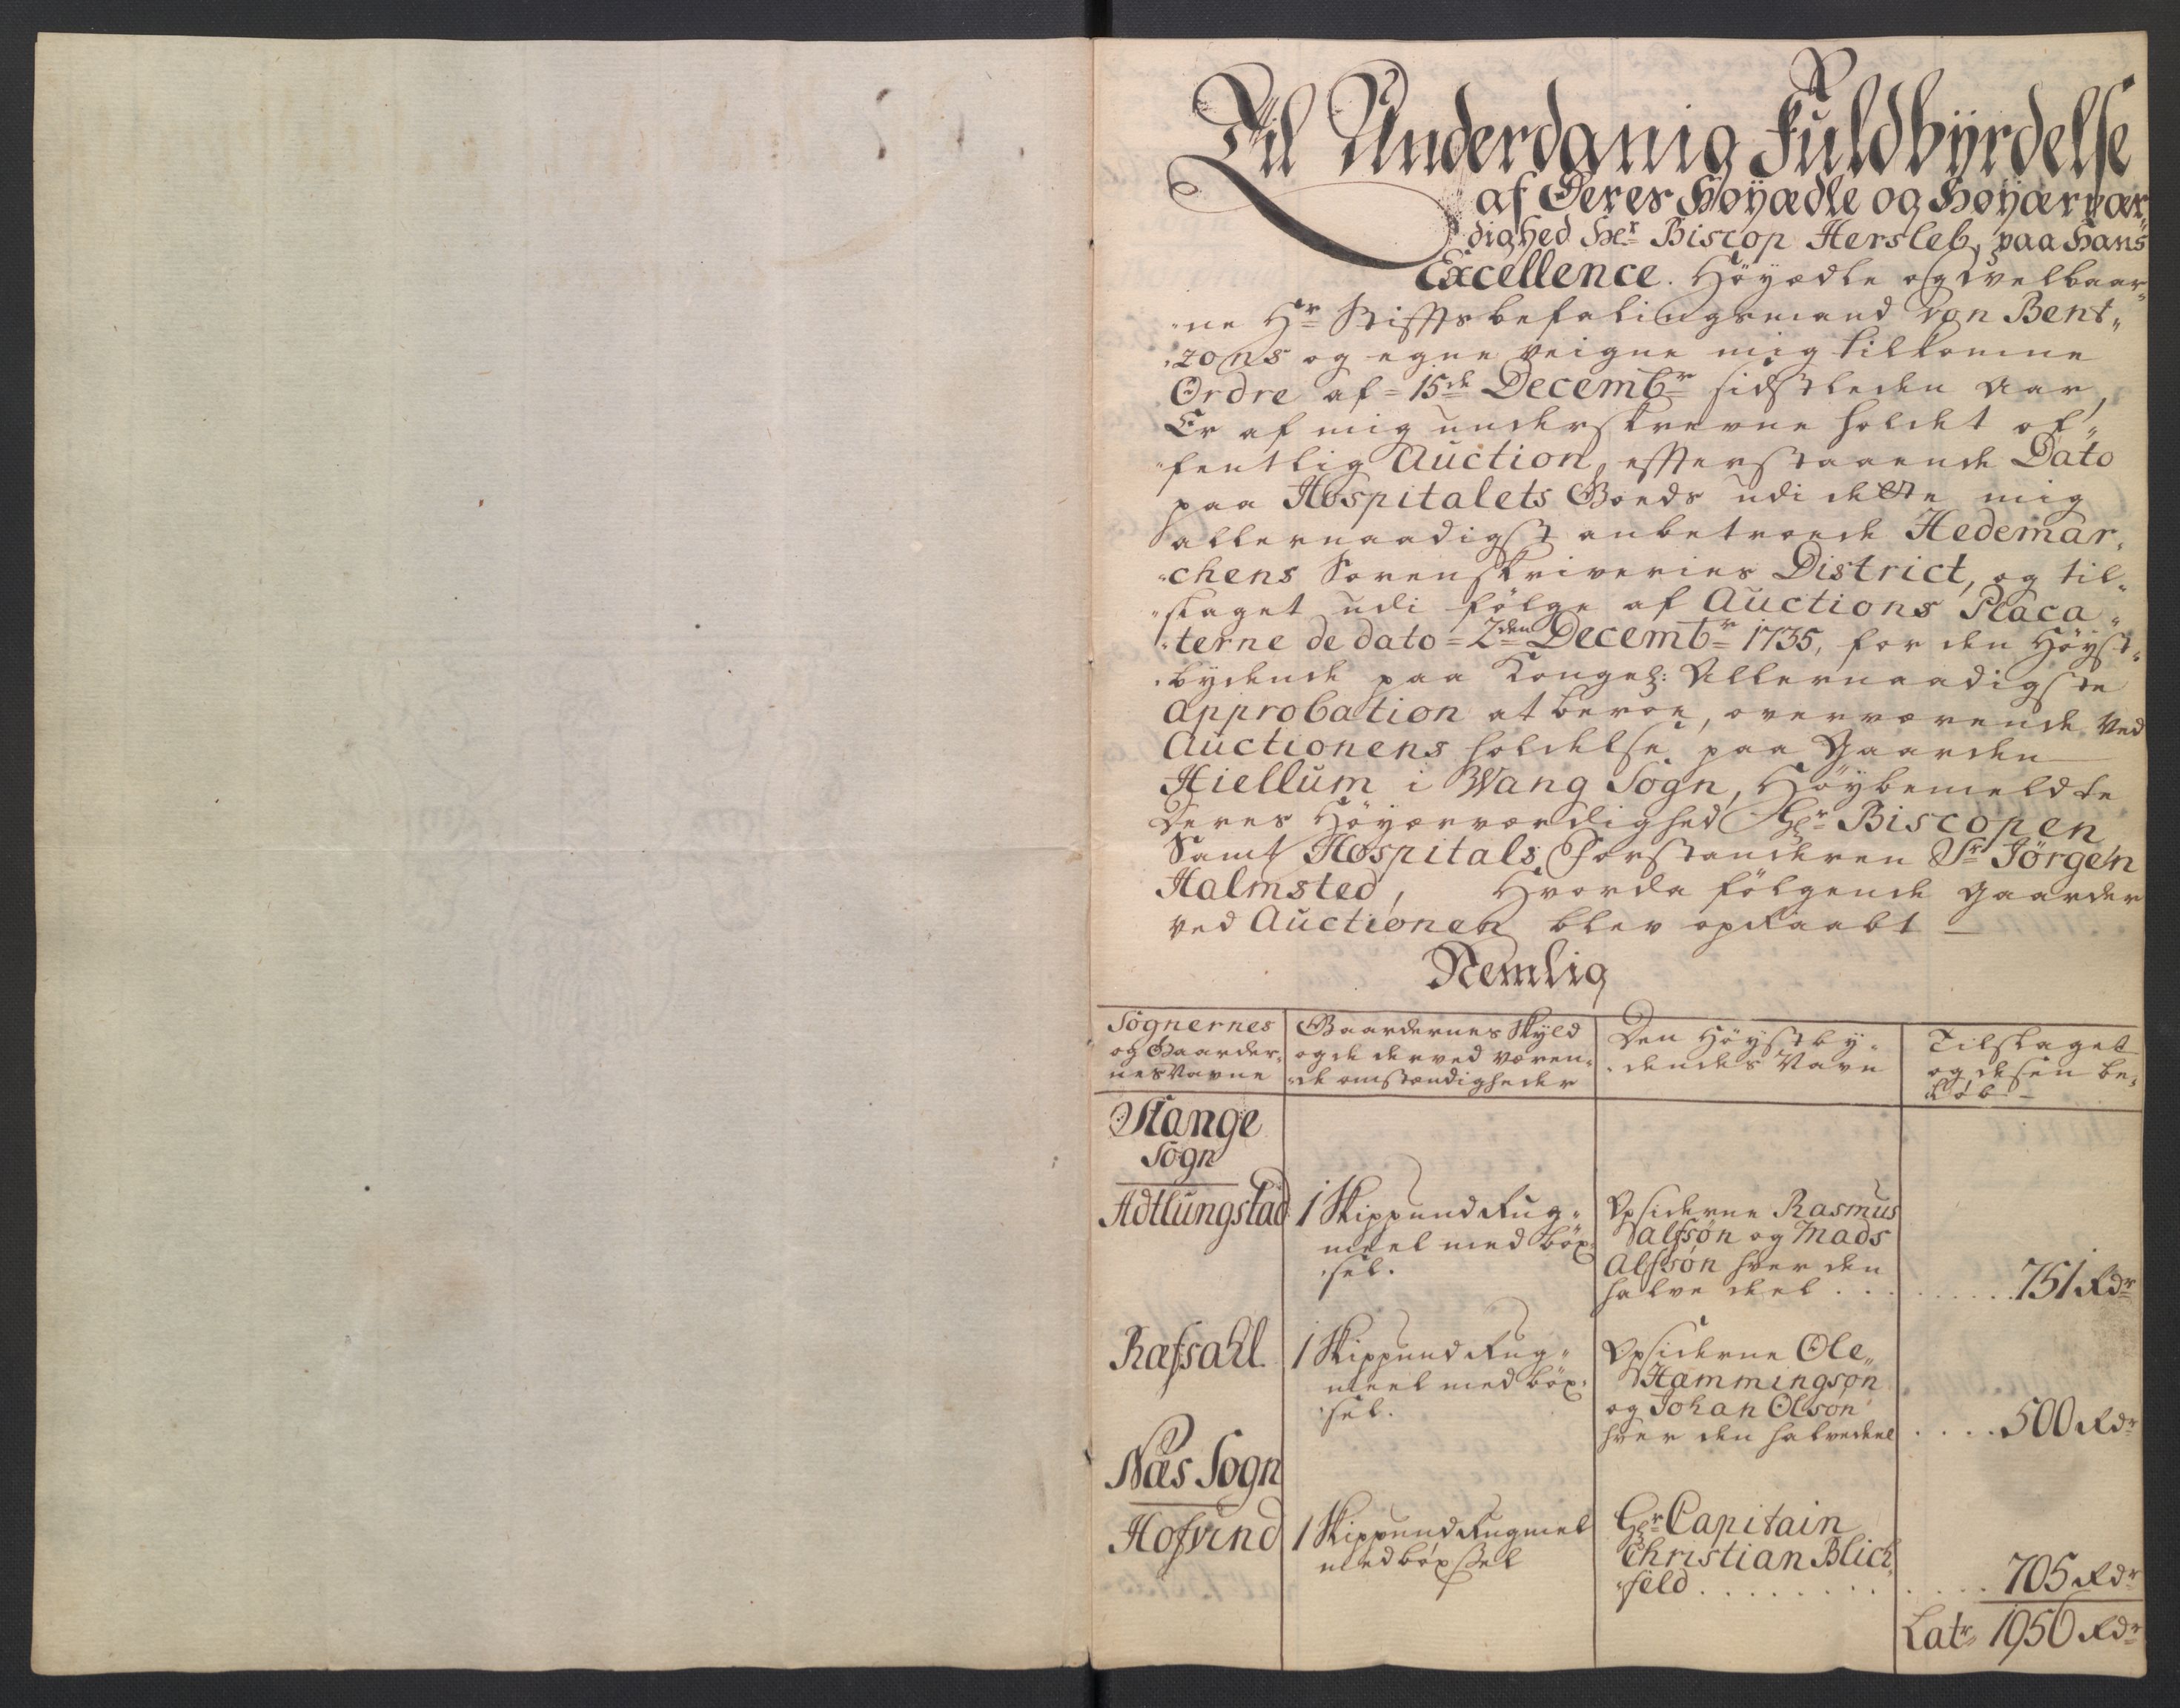 Til Underdanig Fuldbÿrdelse
af Deres Høÿædle og Høÿærvær„
dighed Hr Biscop Hersleb, paa Hans
Excellence. Höÿædle og Velbaar„
„ne Hr Stifftsbefalingsmand von Bent„
„zons og egne veigne mig tilkomne
Ordre af 15de Decembr sidstleden Aar,
Er af mig underskrevne holdet of„
„fentlig Auction, effterstaaende Dato
paa Hospitalets Goeds udi dette mig
allernaadigst anbetroede Hedemar„
„chens Sorenskriveries District, og til„
„slaget udi fölge af Auctions Placa„
„terne de dato 2den Decembr 1735, for den Höÿst„
„bydende paa Kongel: Allernaadigste
Approbation at beroe, overværende ved
Auctionens holdelse paa Gaarden
Hiellum i Wang Sogn, Höybemeldte
Deres Höyærværdighed Hr Biscopen
Samt Hospitals Forstanderen Sr Jörgen
Halmsted, Hvorda fölgende Gaarder
ved Auctionen blev opRaabt
Nemlig
Sognernes og Gaarder„ nes Navne
Gaardernes Skyld og de derved væren„ „de omstændigheder
Den Höystby„ „dendes Navn
Tilslaget og desen be„ löb
Stange
Sogn
Adtlungstad
1 Skippund Rug„
meel med böx„
„sel.
Opsiderne Rasmus
Alfsøn og Mads
Alfsøn hver den
halve deel . . . 751 Rdr
Ræfsahl
1 Skippund Rug„
meel med böx„
„sel.
Opsiderne Ole
Hammingsøn
og Johan Olsøn
hver den halvedeel . . . . 500 Rdr
Næs Sogn
Hofvind
1 Skippund Rugmeel
med böxsel
Hr Capitain
Christian Blich„
„feld . . . . . . . 705 Rdr
Latr 1956 Rdr